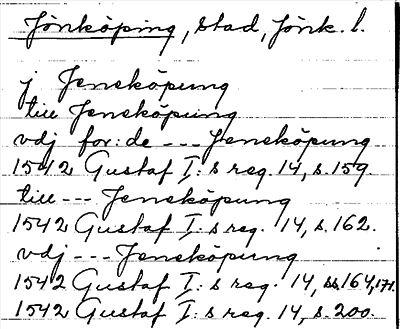 Jönköping, stad, Jönk. l.
j Jenekôpung
till Jenekôpung
vdj for:de --- Jenekôpung
1542 Gustaf I:s reg. 14, s. 159.
till --- Jenekôpung
1542 Gustaf I:s reg. 14, s. 162.
vdj --- Jenekôpung
1542 Gustaf I:s reg. 14, ss. 164, 171.
1542 Gustaf I:s reg. 14, s. 200.